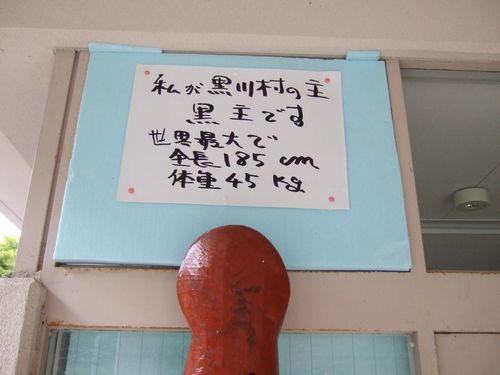 私が黒川村の主
黒主です
世界最大で
全長185cm
体重45Kg